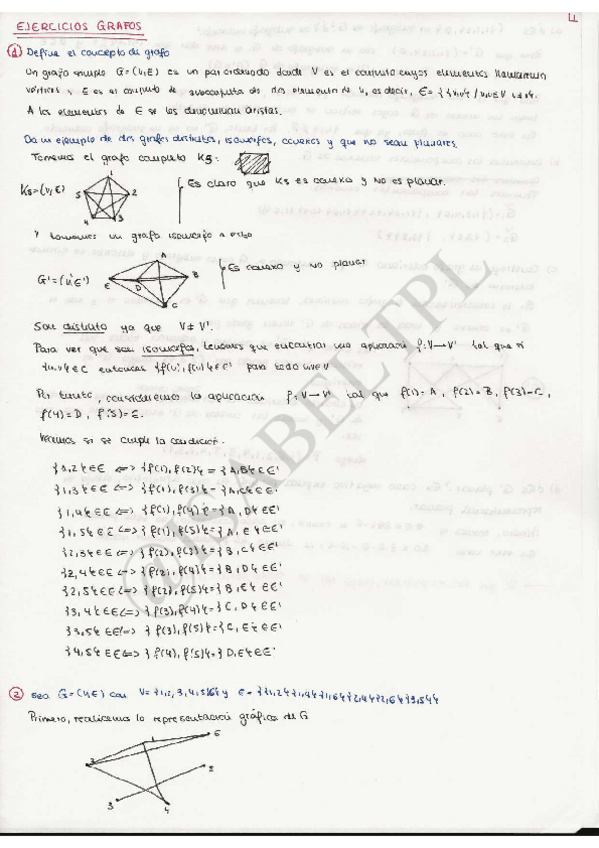 EJERCICIOS GRAFOS
1 Define el concepto de grafo
Un grafo simple G=(V,E) es un par ordenado donde V es el conjunto cuyos elementos llamamos
vértices y E es el conjunto de subconjuntos de dos elementos de V, es decir, E={{u,v} / u,v∈V
A los elementos de E se les denominan aristas.
Da un ejemplo de dos grafos distintos, isomorfos, conexos y que no sean planares.
Tomemos el grafo completo K5:
K5=(V,E)
1
5 2
4 3
Es claro que K5 es conexo y no es planar.
Y tomemos un grafo isomorfo a
G'=(V',E')
A
E D B
C
Es conexo y no planar
Son distintos ya que V≠V'.
Para ver que sean isomorfos, tenemos que encontrar una aplicación f:V→V' tal que si
{u,v}∈E entonces {f(u),f(v)}∈E' para todo u,v∈V
Por tanto, consideremos la aplicación f:V→V' tal que f(1)=A, f(2)=B, f(3)=C,
f(4)=D, f(5)=E.
Veamos si se cumple la condición.
{1,2}∈E <=> {f(1),f(2)}={A,B}∈E'
{1,3}∈E <=> {f(1),f(3)}={A,C}∈E'
{1,4}∈E <=> {f(1),f(4)}={A,D}∈E'
{1,5}∈E <=> {f(1),f(5)}={A,E}∈E'
{2,3}∈E <=> {f(2),f(3)}={B,C}∈E'
{2,4}∈E <=> {f(2),f(4)}={B,D}∈E'
{2,5}∈E <=> {f(2),f(5)}={B,E}∈E'
{3,4}∈E <=> {f(3),f(4)}={C,D}∈E'
{3,5}∈E <=> {f(3),f(5)}={C,E}∈E'
{4,5}∈E <=> {f(4),f(5)}={D,E}∈E'
@ISABELTPL
2 Sea G=(V,E) con V={1,2,3,4,5,6} y E={{1,2}{1,4}{1,6}{2,4}{2,6}{3,5}}
Primero, realicemos la representación gráfica de G
1 6
2
3 4